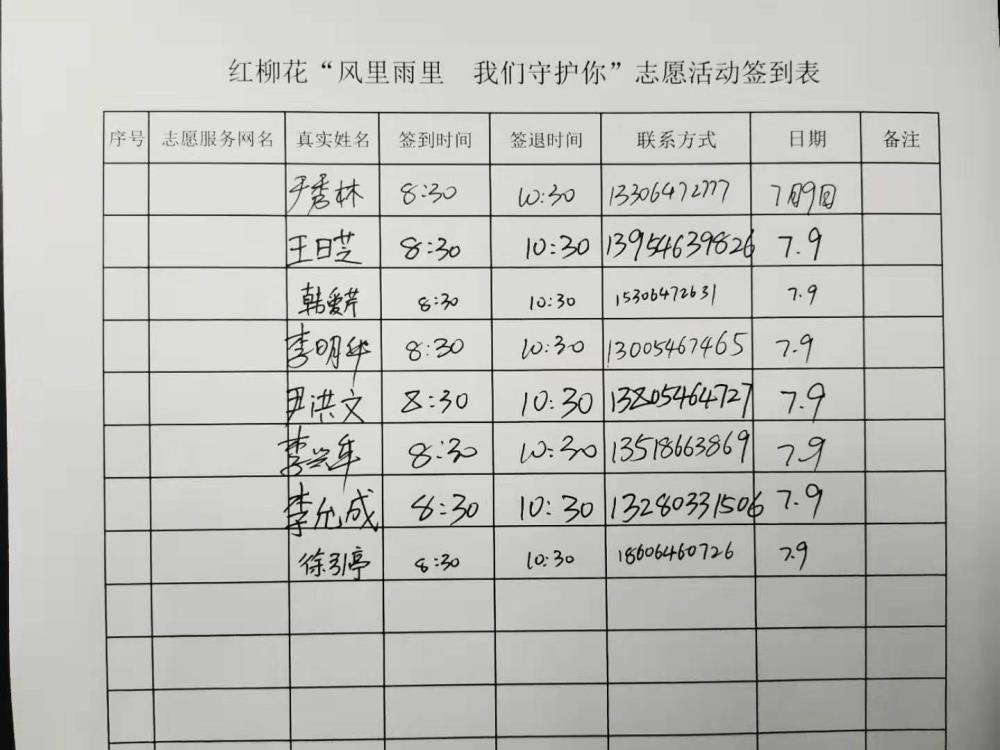 红柳花“风里雨里 我们守护你”志愿活动签到表
序号 志愿服务网名 真实姓名 签到时间 签退时间 联系方式 日期 备注
于秀林 8:30 10:30 13306472777 7月9日
王日芝 8:30 10:30 13954639826 7.9
韩爱芹 8:30 10:30 15306472631 7.9
李明华 8:30 10:30 13005467465 7.9
尹洪文 8:30 10:30 13805464727 7.9
李兴年 8:30 10:30 13518663869 7.9
李允成 8:30 10:30 13280331506 7.9
徐引亭 8:30 10:30 18606460726 7.9